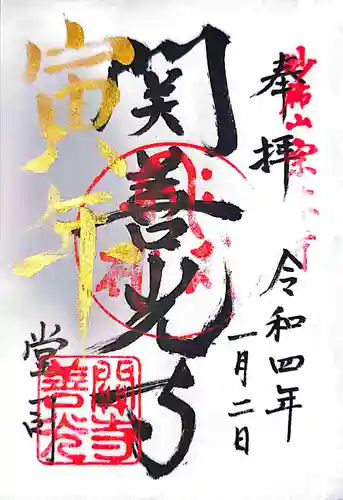 奉拝
令和四年
一月二日
関善光寺
寅年
堂司
関善光寺